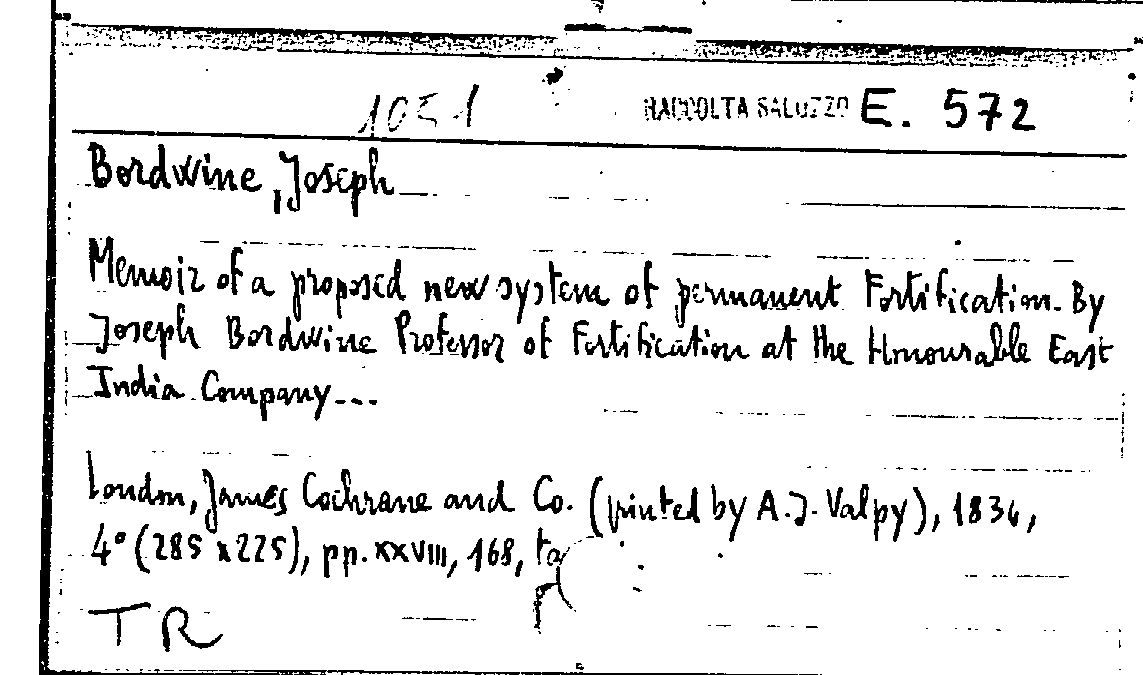 1051 RACCOLTA SALUZZO E. 572
Bordwine, Joseph
Memoir of a proposed new system of permanent Fortification. By
Joseph Bordwine Professor of Fortification at the Honourable East
India Company---
London, James Cochrane and Co. (printed by A.J. Valpy), 1834,
4° (285 x 225), pp. XXVIII, 168, ta
TR